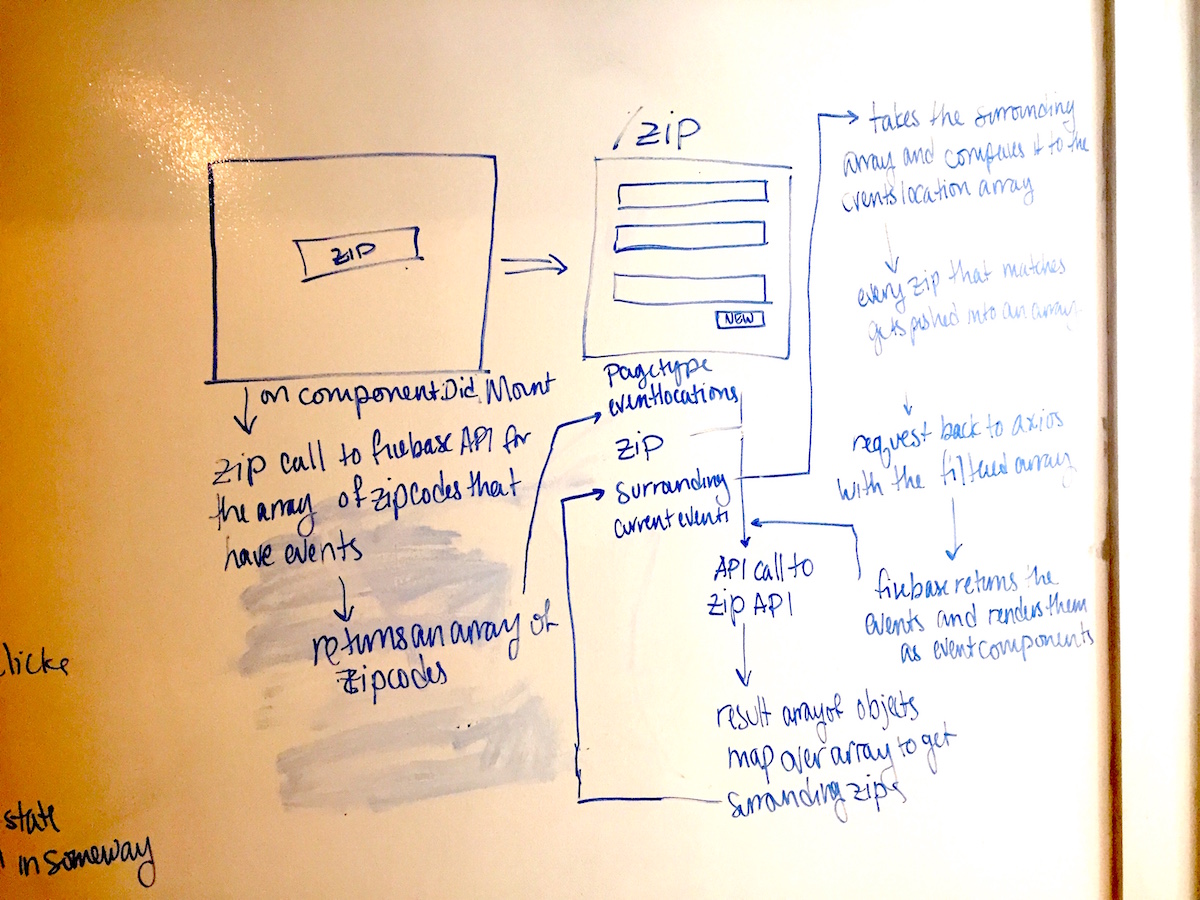 ZIP
on componentDid Mount
zip call to firebase API for
the array of zipcodes that
have events
returns an array of
zipcodes
/zip
NEW
Pagetype
eventlocations
zip
surranding
current events
API call to
zip API
result array of objects
map over array to get
surranding zips
takes the surrounding
array and compares it to the
events location array
every zip that matches
gets pushed into an array
request back to axios
with the filtered array
firebase returns the
events and renders them
as event components
licke
state
in someway